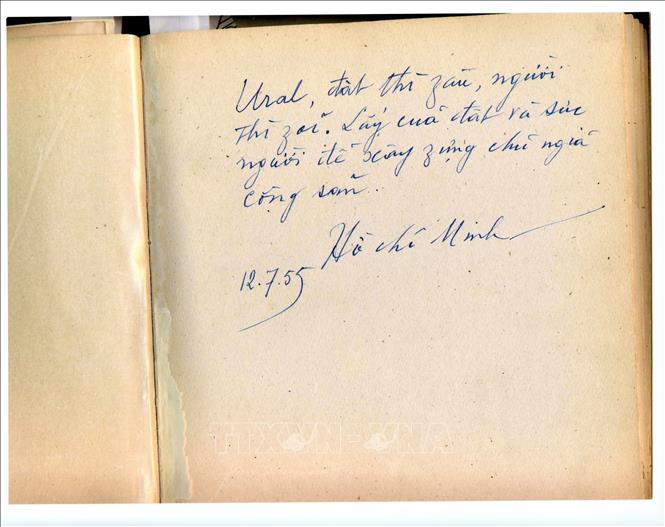 Ural, đất thì zầu, người
thì zỏi. Lấy của đất và sức
người để xây zựng chủ nghĩa
cộng sản.
Hồ chí Minh
12.7.55
TTXVN - VNA